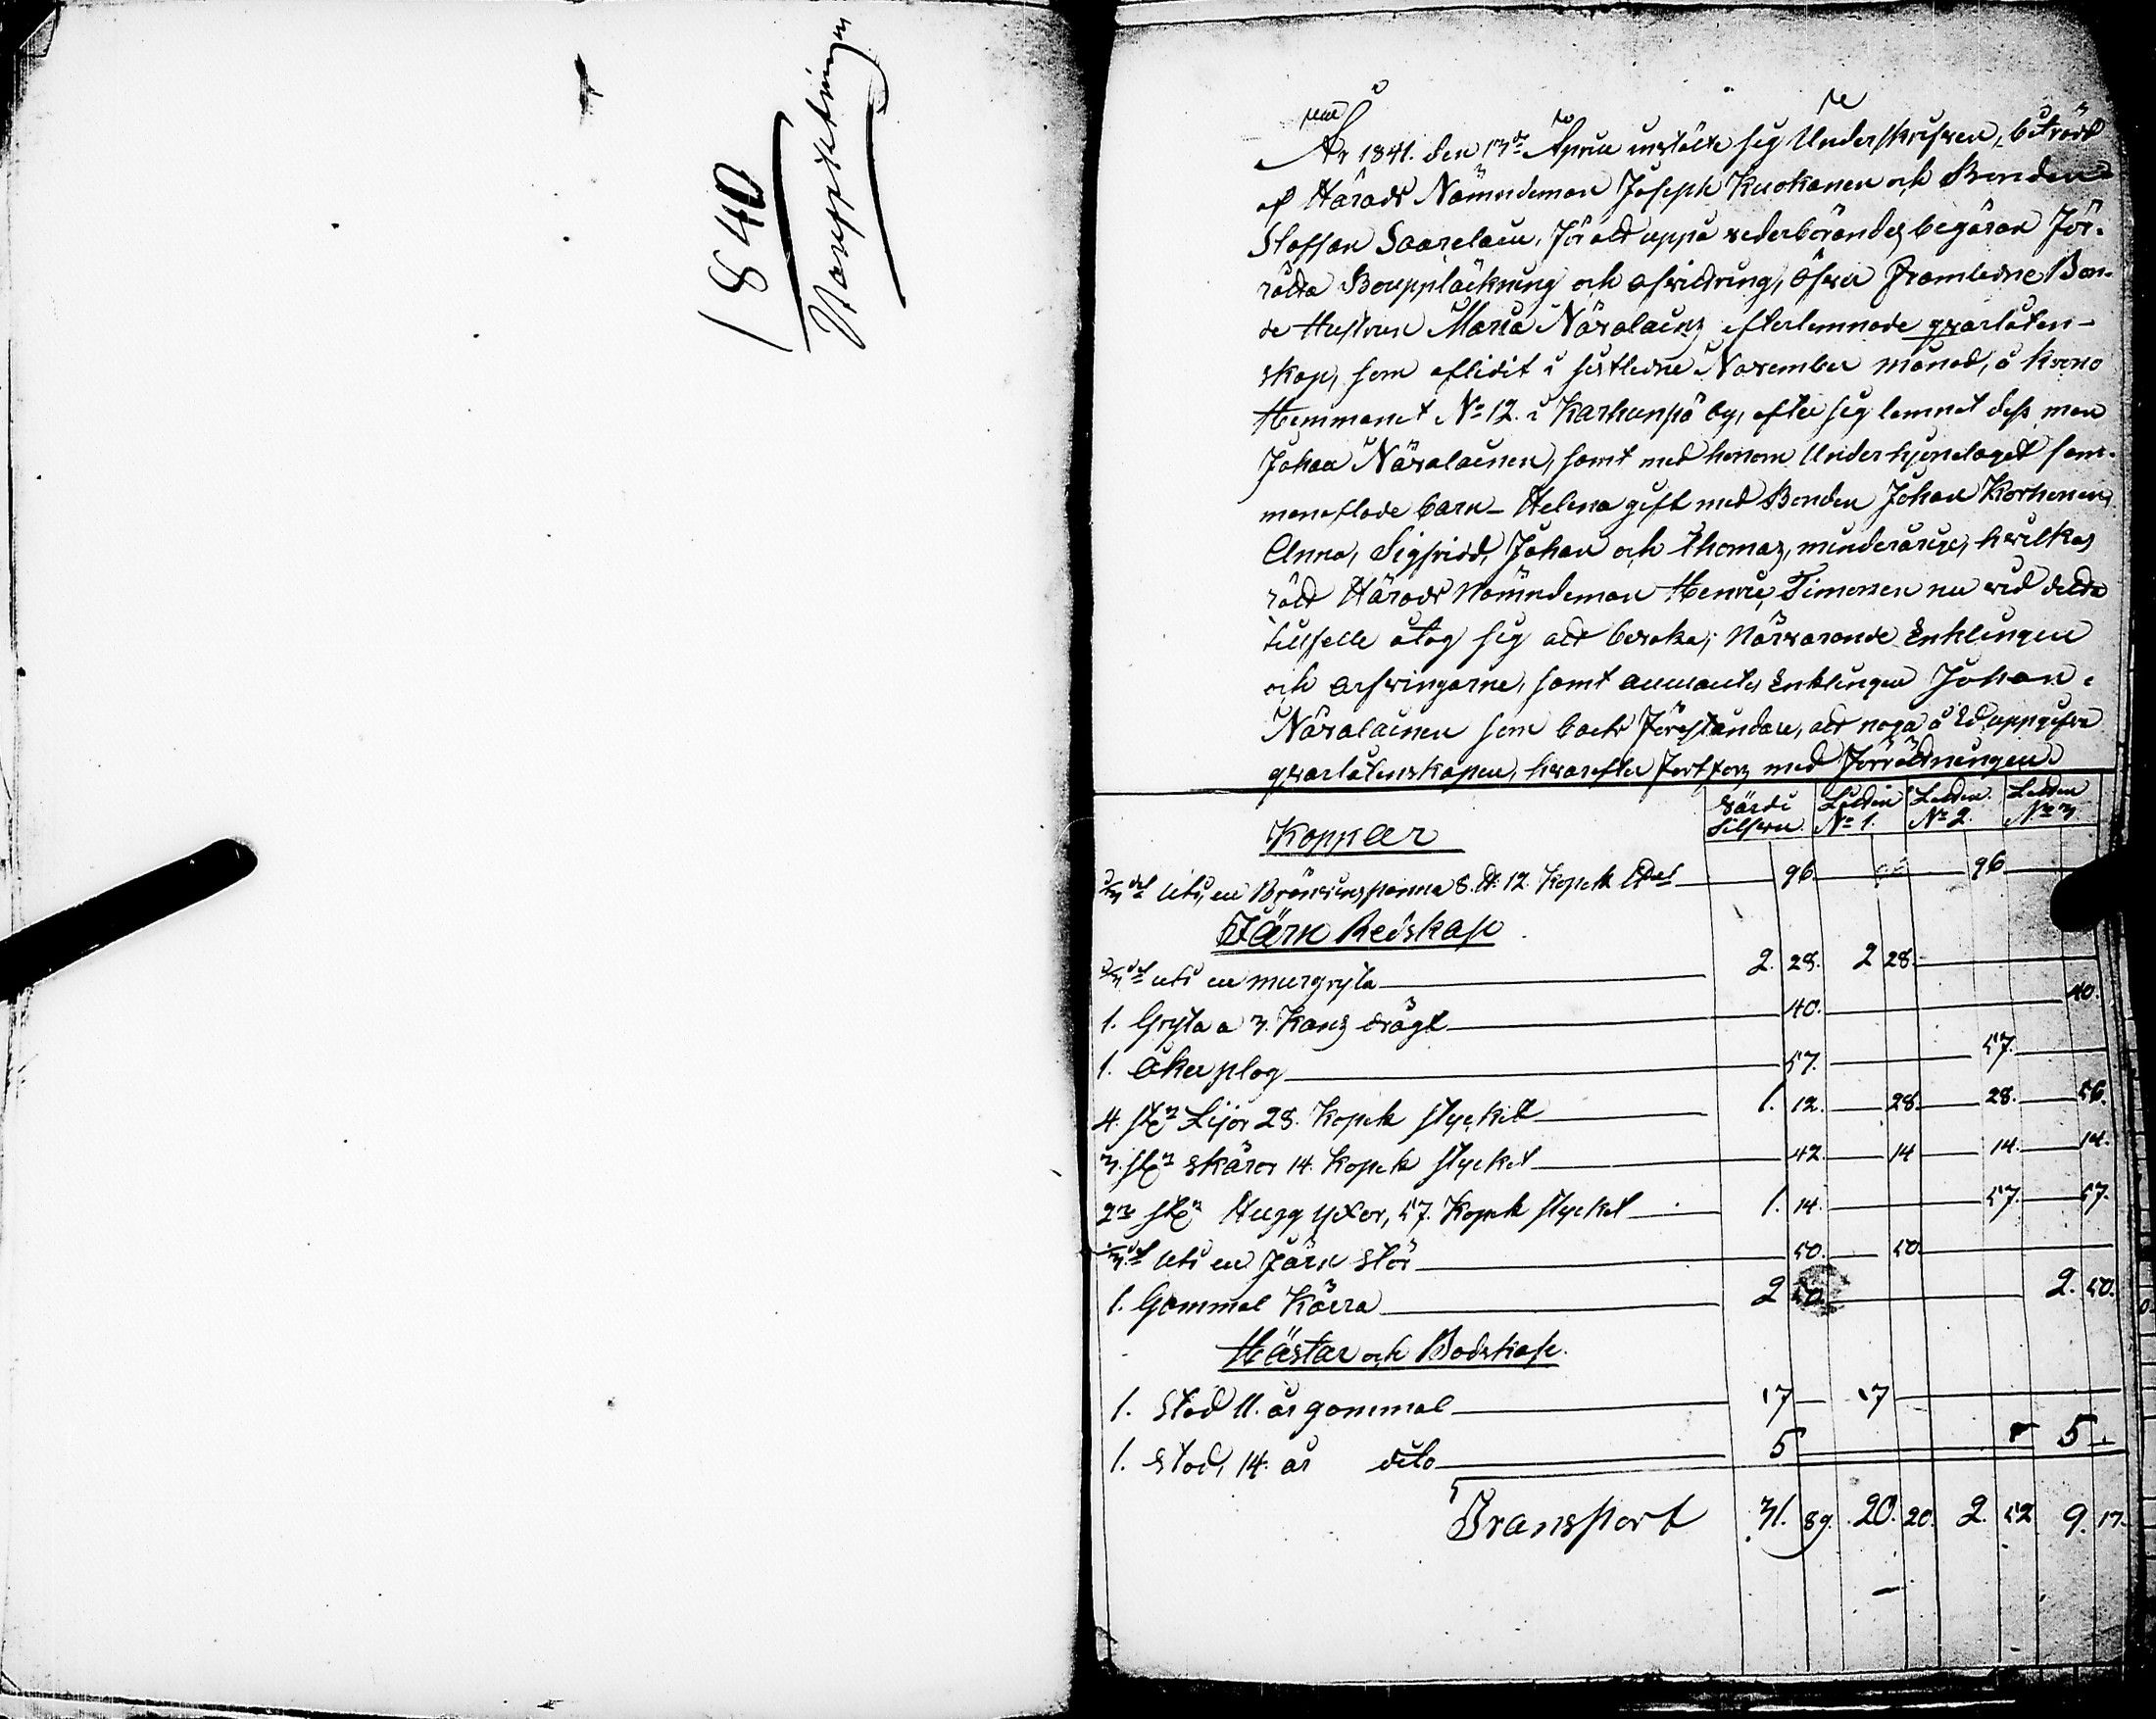 1840
År 1841. den 13de Aprill instälte sig Underskrifven, biträdd
af Härads Nämndeman Joseph Kuokanen och Bonden
Staffan Saarelain, för att uppå vederbörandes begäran för-
rätta Bouppteckning och afvittring, öfver framledne Bon-
de Hustrun Maria Näralains efterlemnade qvarlåten-
skap, som aflidit i sistledne November månad, å krono
Hemmanet No 12. i Karhunpä by, efter sig lemnat dess man
Johan Näralainen, samt med honom Under hjonelaget sam-
manaflade barn – Helena gift med Bonden Johan Korhonen,
Anna, Sigfridd, Johan och Thomas, minderårige, hvilkas
rätt Härads Nämndeman Henric Timonen nu vid detta
tillfelle åtog sig att bevaka; Närvarande Enklingen
och arfvingarne, samt Enklingen Johan
Näralainen som boets föreståndare, att noga å Ed uppgifva
qvarlåtenskapen, hvarefter fortfors med förrättningen.
Värde Silfver. Lotten No 1. Lotten No 2. Lotten No 3
Koppar
uti en Brännvinspanna 8. lb. 12. Kopek 96 96
Järn Redskap
uti en murgryta 2. 28. 2 28.
1. Gryta a 3. Kans drägt 40. 40.
1. åker plog 57. 57.
4. st Lijor 28. Kopek stycket 1. 12. 28. 28. 56.
3. st skäror 14. Kopek stycket 42. 14 14. 14.
2 st Hugg yxor, 57. Kopek stycket 1. 14. 57. 57.
uti en Järn stör 50. 50.
1. Gammal Kärra 2 50. 2. 50.
Hästar och Bodskap.
1. Stod 11. år gammal 17 17
1. Stod, 14. år dito 5 5
Transport 31. 89. 20. 20. 2. 52 9. 17.